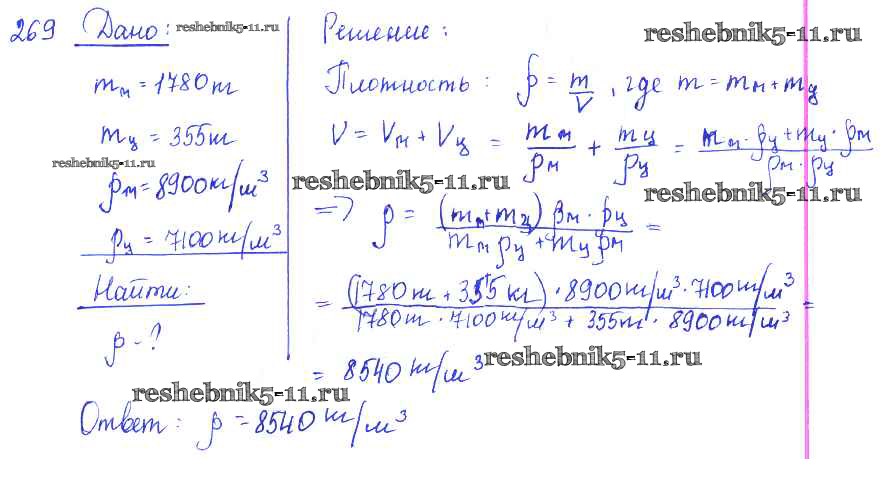 269 Дано: reshebnik5-11.ru
mм = 1780 кг
mц = 355 кг
reshebnik5-11.ru
ρм = 8900 кг/м³
ρц = 7100 кг/м³
Найти:
ρ - ?
Решение: reshebnik5-11.ru
Плотность: ρ = m/V, где m = mм + mц
V = Vм + Vц = mм/ρм + mц/ρц = (mм · ρц + mц · ρм)/(ρм · ρц)
reshebnik5-11.ru reshebnik5-11.ru
=> ρ = (mм + mц) ρм · ρц/(mм ρц + mц ρм) =
= (1780 кг + 355 кг) · 8900 кг/м³ · 7100 кг/м³/(1780 кг · 7100 кг/м³ + 355 кг · 8900 кг/м³) =
= 8540 кг/м³ reshebnik5-11.ru
reshebnik5-11.ru
Ответ: ρ = 8540 кг/м³